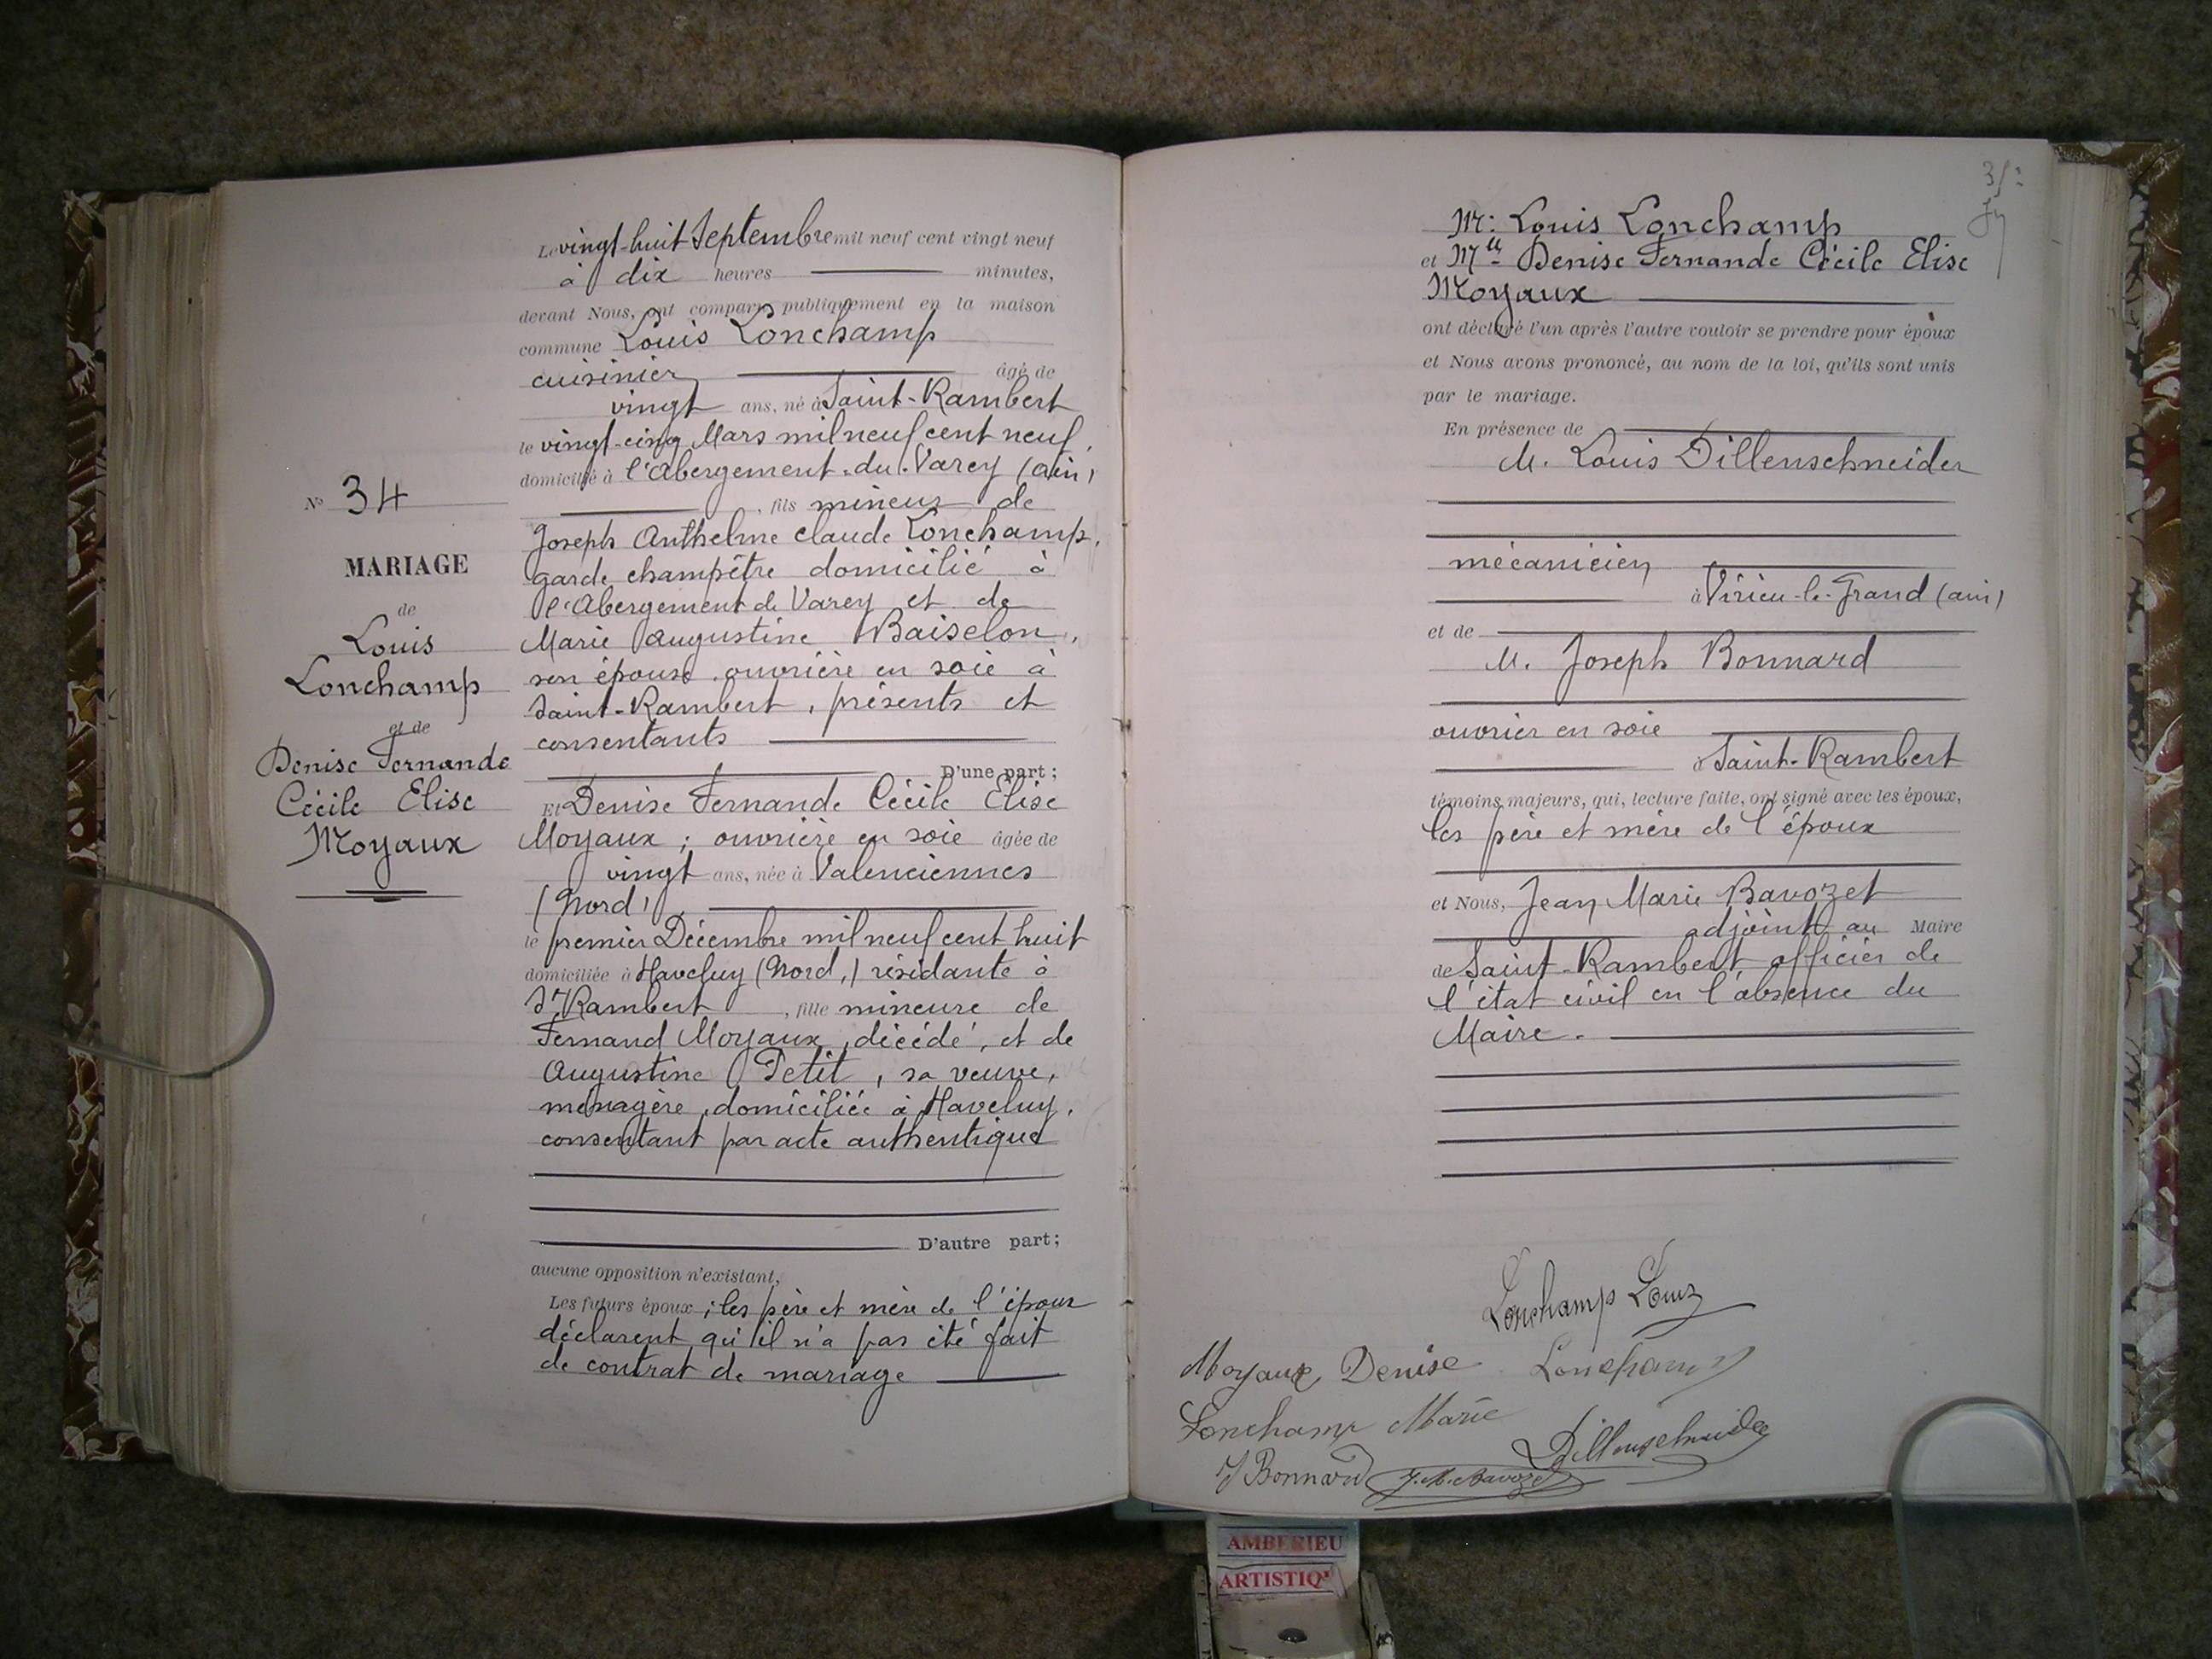 N° 34
MARIAGE
de
Louis
Lonchamp
et de
Denise Fernande
Cécile Elise
Moyaux
Le vingt-huit Septembre mil neuf cent vingt neuf
à dix heures minutes,
devant Nous, ont comparu publiquement en la maison
commune Louis Lonchamp
cuisinier âgé de
vingt ans, né à Saint-Rambert
le vingt-cinq Mars mil neuf cent neuf,
domicilié à l'Abergement-du-Varey (ain)
, fils mineur de
Joseph Anthelme Claude Lonchamp,
garde champêtre domicilié à
l'Abergement de Varey et de
Marie Augustine Baiselon,
son épouse ouvrière en soie à
Saint-Rambert, présents et
consentants
D'une part;
Et Denise Fernande Cécile Elise
Moyaux; ouvrière en soie âgée de
vingt ans, née à Valenciennes
(Nord)
le premier Décembre mil neuf cent huit
domiciliée à Haveluy (Nord,) résidante à
St Rambert, fille mineure de
Fernand Moyaux, décédé, et de
Augustine Petit, sa veuve,
ménagère, domiciliée à Haveluy,
consentant par acte authentique
D'autre part;
aucune opposition n'existant,
Les futurs époux; les père et mère de l'époux
déclarent qu'il n'a pas été fait
de contrat de mariage
M: Louis Lonchamp
et Mlle Denise Fernande Cécile Elise
Moyaux
ont déclaré l'un après l'autre vouloir se prendre pour époux
et Nous avons prononcé, au nom de la loi, qu'ils sont unis
par le mariage.
En présence de
M. Louis Dillenschneider
mécanicien
à Virieu-le-Grand (ain)
et de
M. Joseph Bonnard
ouvrier en soie
à Saint-Rambert
témoins majeurs, qui, lecture faite, ont signé avec les époux,
les père et mère de l'époux
et Nous, Jean Marie Bavozet
adjoint au Maire
de Saint-Rambert officier de
l'état civil en l'absence du
Maire.
Lonchamp Louis
Moyaux Denise Lonchamp
Lonchamp Marie
Dillenschneider
J Bonnard J. M. Bavozet
AMBERIEU
ARTISTIQ